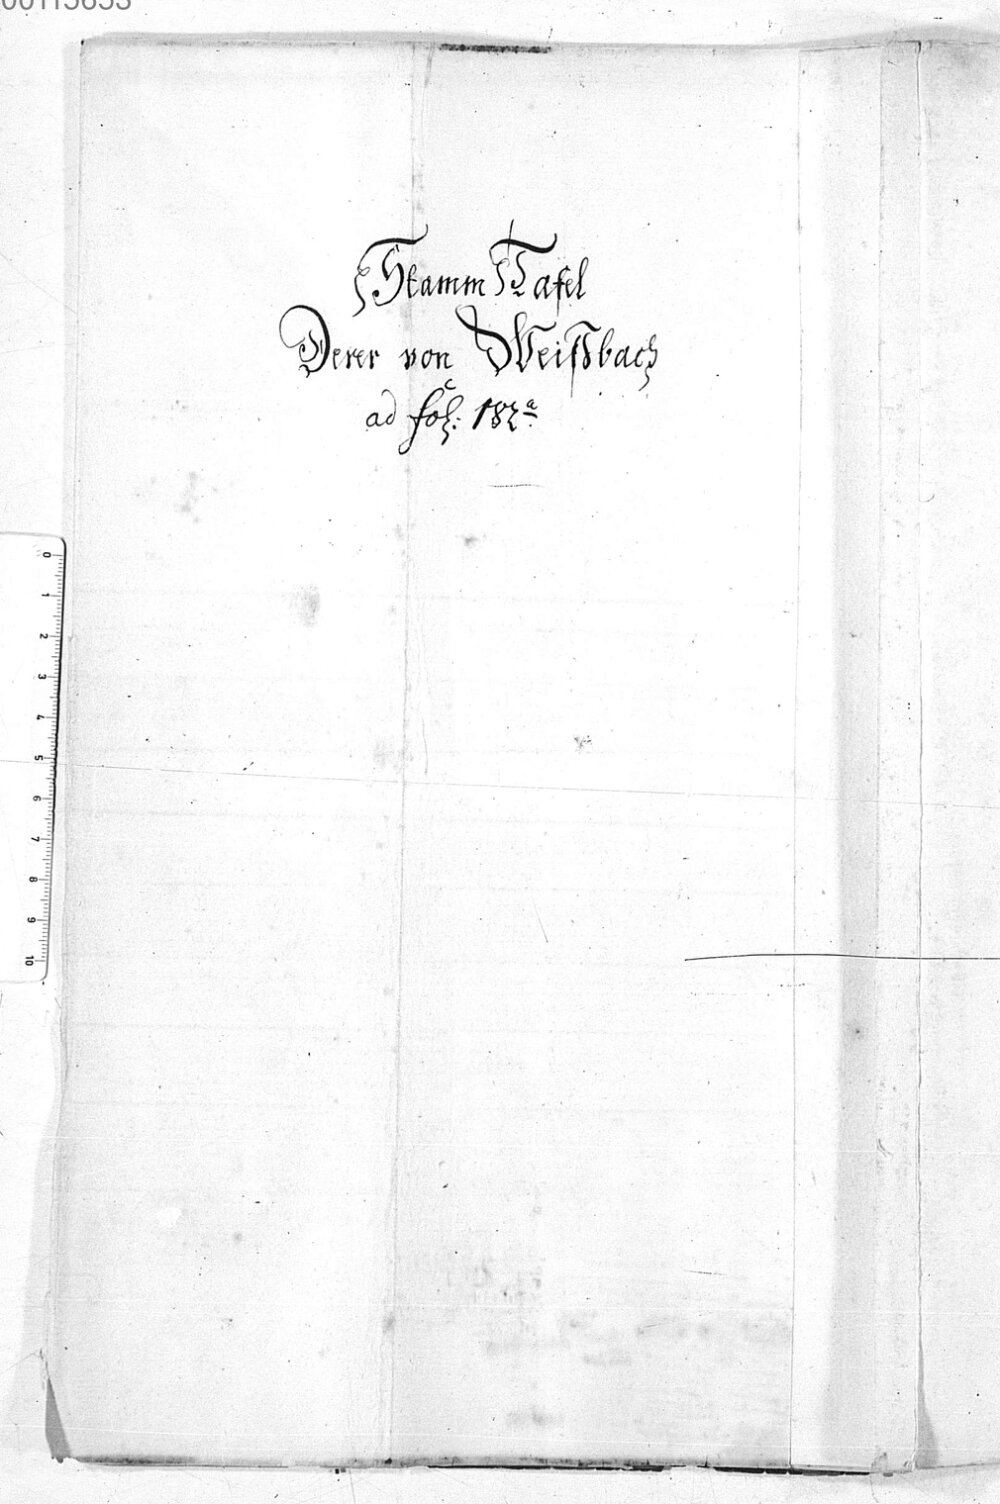 00115653
Stamm Tafel
Derer von Weißbach
ad fol: 182ª
0 1 2 3 4 5 6 7 8 9 10